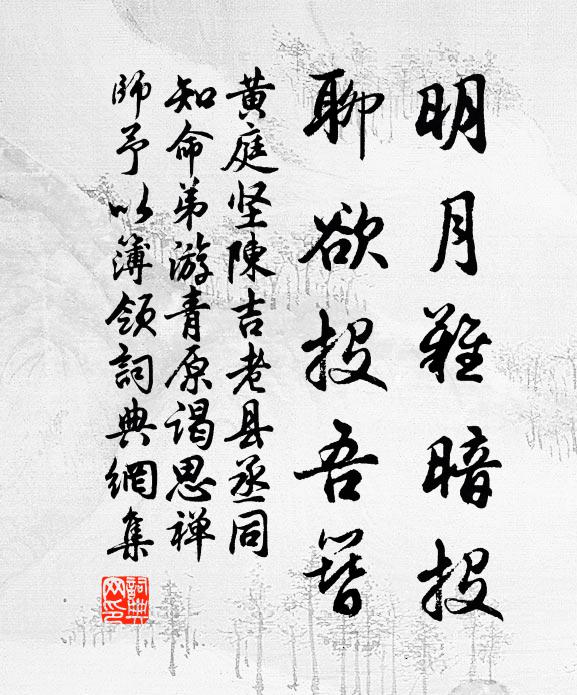 明月難暗投
聊欲投吾簪
黄庭坚陳吉老县丞同
知命弟游青原谒思禅
師予以簿领詞典網集
詞典